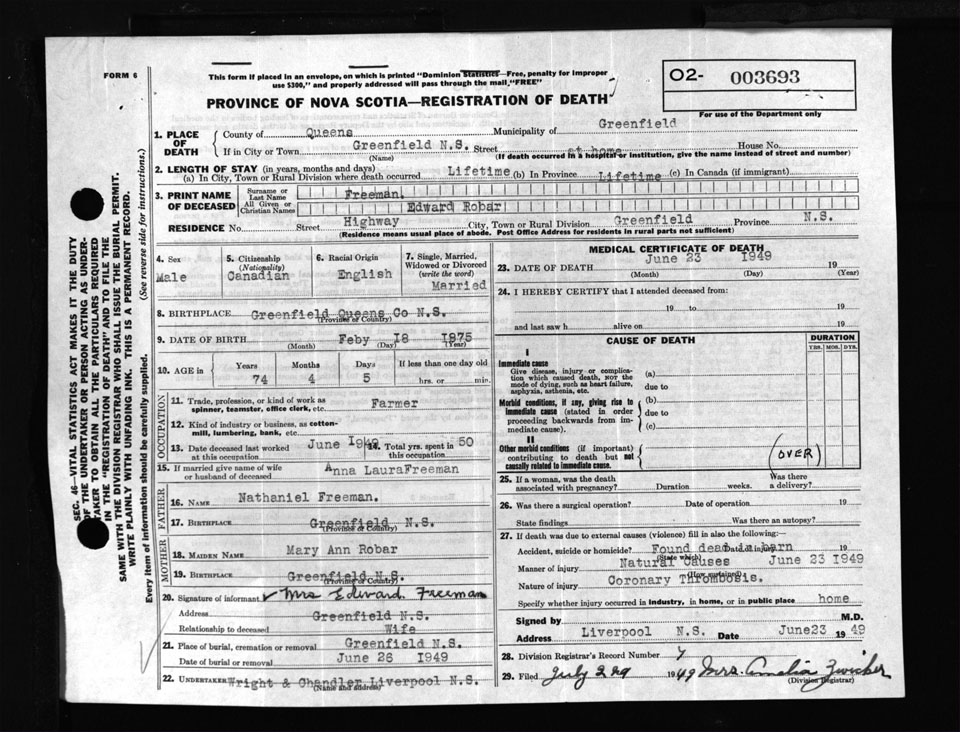 FORM 6
This form if placed in an envelope, on which is printed "Dominion Statistics—Free, penalty for improper
use $300," and properly addressed will pass through the mail "FREE"
O2- 003693
PROVINCE OF NOVA SCOTIA—REGISTRATION OF DEATH
For use of the Department only
SEC. 46—VITAL STATISTICS ACT MAKES IT THE DUTY
OF THE UNDERTAKER OR PERSON ACTING AS UNDER-
TAKER TO OBTAIN ALL THE PARTICULARS REQUIRED
IN THE "REGISTRATION OF DEATH" AND TO FILE THE
SAME WITH THE DIVISION REGISTRAR WHO SHALL ISSUE THE BURIAL PERMIT.
WRITE PLAINLY WITH UNFADING INK. THIS IS A PERMANENT RECORD.
Every item of information should be carefully supplied. (See reverse side for instructions.)
1. PLACE OF DEATH County of Queens Municipality of Greenfield
If in City or Town Greenfield N.S. Street at home House No.
(Name) (If death occurred in a hospital or institution, give the name instead of street and number)
2. LENGTH OF STAY (in years, months and days)
(a) In City, Town or Rural Division where death occurred Lifetime (b) In Province Lifetime (c) In Canada (if immigrant)
3. PRINT NAME OF DECEASED Surname or Last Name Freeman.
All Given or Christian Names Edward Robar
RESIDENCE No. Street Highway City, Town or Rural Division Greenfield Province N.S.
(Residence means usual place of abode. Post Office Address for residents in rural parts not sufficient)
4. Sex Male
5. Citizenship (Nationality) Canadian
6. Racial Origin English
7. Single, Married, Widowed or Divorced (write the word) Married
8. BIRTHPLACE Greenfield Queens Co N.S.
(Province or Country)
9. DATE OF BIRTH Feby I8 I875
(Month) (Day) (Year)
10. AGE in Years Months Days If less than one day old
74 4 5 hrs. or min.
OCCUPATION
11. Trade, profession, or kind of work as
spinner, teamster, office clerk, etc. Farmer
12. Kind of industry or business, as cotton-
mill, lumbering, bank, etc.
13. Date deceased last worked at this occupation June I949
14. Total yrs. spent in this occupation 50
15. If married give name of wife
or husband of deceased Anna LauraFreeman
FATHER
16. NAME Nathaniel Freeman.
17. BIRTHPLACE Greenfield N.S.
(Province or Country)
MOTHER
18. MAIDEN NAME Mary Ann Robar
19. BIRTHPLACE Greenfield N.S.
(Province or Country)
20. Signature of informant Mrs Edward Freeman
Address Greenfield N.S.
Relationship to deceased Wife
21. Place of burial, cremation or removal Greenfield N.S.
Date of burial or removal June 26 I949
22. UNDERTAKER Wright & Chandler Liverpool N.S.
(Name and address)
MEDICAL CERTIFICATE OF DEATH
23. DATE OF DEATH June 23 I949 19
(Month) (Day) (Year)
24. I HEREBY CERTIFY that I attended deceased from:
19 to 19
and last saw h alive on 19
CAUSE OF DEATH
DURATION
YRS. MOS. DYS.
I
Immediate cause
Give disease, injury or complica-
tion which caused death, NOT the
mode of dying, such as heart failure,
asphyxia, asthenia, etc.
(a)
due to
Morbid conditions, if any, giving rise to
immediate cause (stated in order
proceeding backwards from im-
mediate cause).
(b)
due to
(c)
II
Other morbid conditions (if important)
contributing to death but not
causally related to immediate cause.
(OVER)
25. If a woman, was the death
associated with pregnancy? Duration weeks. Was there a delivery?
26. Was there a surgical operation? Date of operation 19
State findings Was there an autopsy?
27. If death was due to external causes (violence) fill in also the following:—
Accident, suicide or homicide? Found dead in barn Date of injury 19
(State which)
Manner of injury Natural Causes June 23 I949
(How sustained)
Nature of injury Coronary Thrombosis.
Specify whether injury occurred in industry, in home, or in public place home
Signed by M.D.
Address Liverpool N.S. Date June23 1949
28. Division Registrar's Record Number 7
29. Filed July 2 29 1949 Mrs. Amelia Zwicker
(Division Registrar)